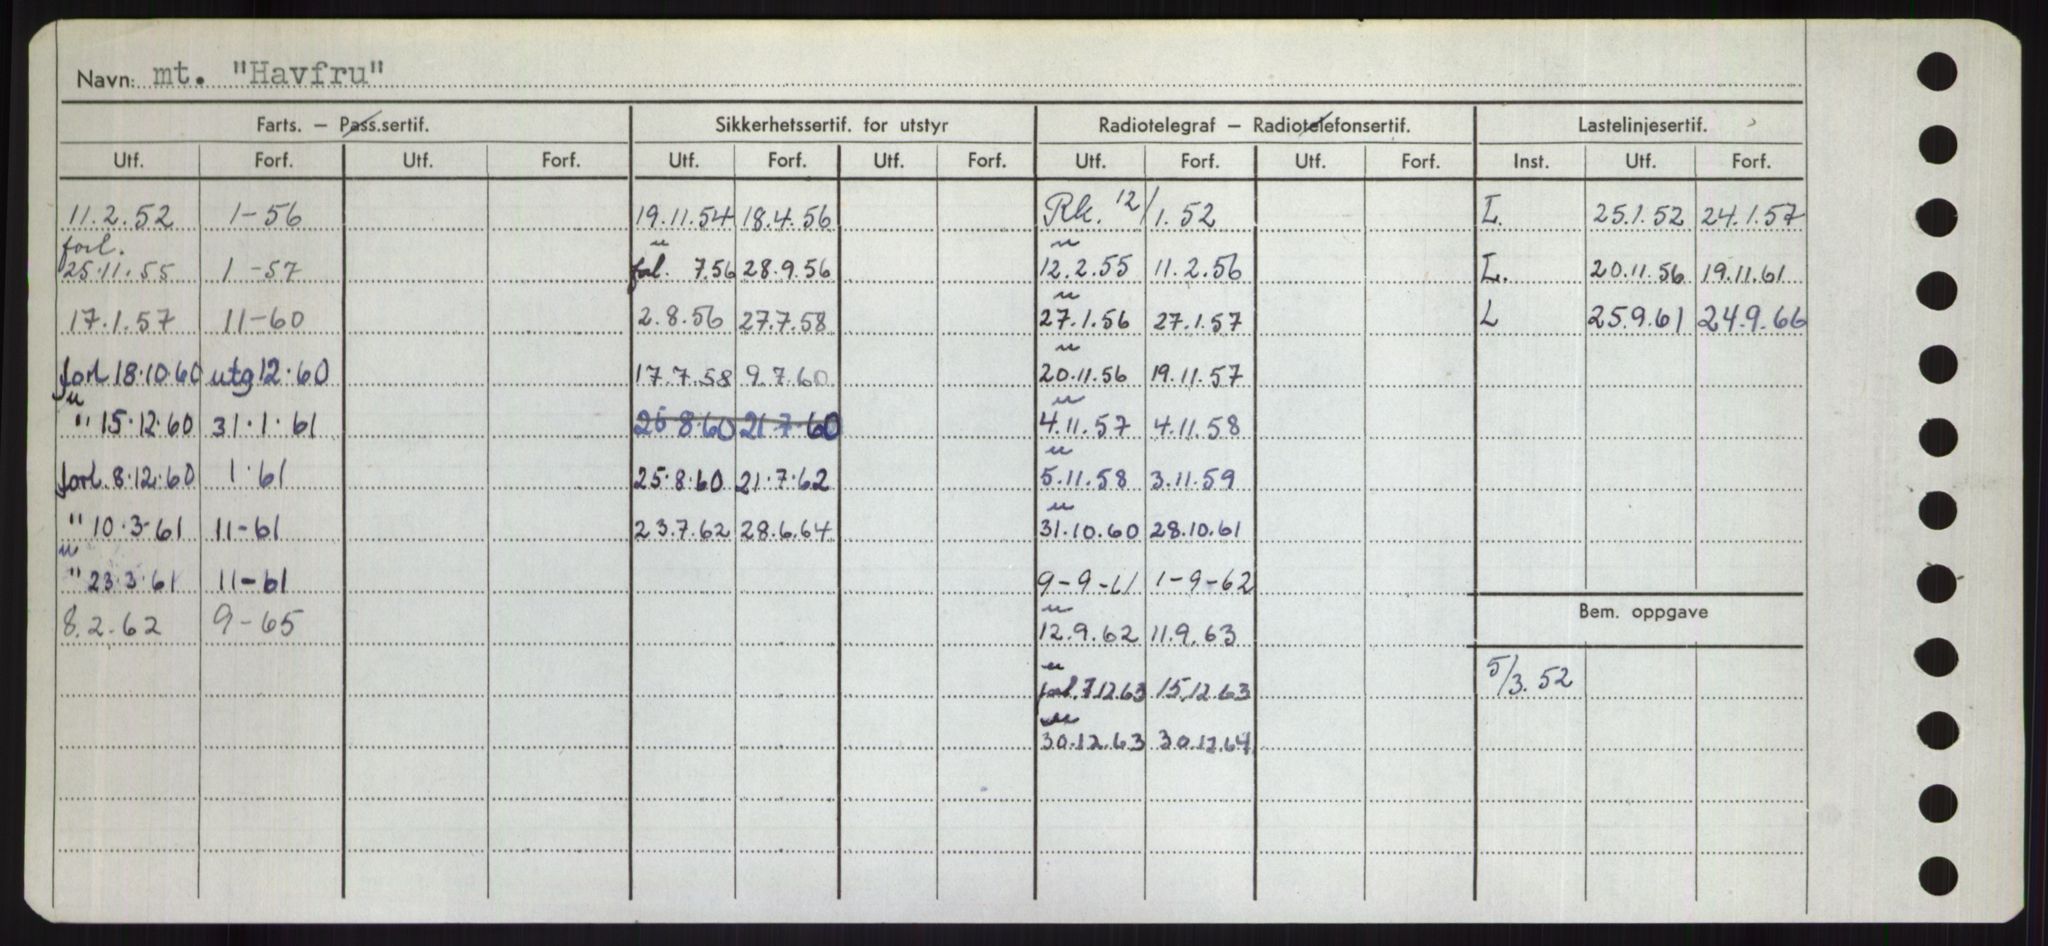 Navn: mt. "Havfru"
Farts. — Pass.sertif. Sikkerhetssertif. for utstyr Radiotelegraf — Radiotelefonsertif. Lastelinjesertif.
Utf. Forf. Utf. Forf. Utf. Forf. Utf. Forf. Utf. Forf. Utf. Forf. Inst. Utf. Forf.
11.2.52 1-56 19.11.54 18.4.56 Rk. 12/1.52 L. 25.1.52 24.1.57
forl. u u
25.11.55 1-57 fol. 7.56 28.9.56 12.2.55 11.2.56 L. 20.11.56 19.11.61
u
17.1.57 11-60 2.8.56 27.7.58 27.1.56 27.1.57 L 25.9.61 24.9.66
u
forl 18.10.60 utg 12.60 17.7.58 9.7.60 20.11.56 19.11.57
u u
" 15.12.60 31.1.61 25.8.60 21.7.60 4.11.57 4.11.58
u
forl. 8.12.60 1.61 25.8.60 21.7.62 5.11.58 3.11.59
u
" 10.3-61 11-61 23.7.62 28.6.64 31.10.60 28.10.61
u
" 23.3.61 11-61 9-9-61 1-9-62
u Bem. oppgave
8.2.62 9-65 12.9.62 11.9.63
u
forl. 7.12.63 15.12.63 5/3.52
u
30.12.63 30.12.64